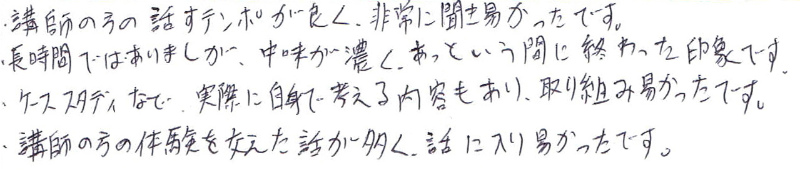 ・講師の方の話すテンポが良く、非常に聞き易かったです。
・長時間ではありましが、中味が濃く、あっという間に終わった印象です。
・ケーススタディなど、実際に自身で考える内容もあり、取り組み易かったです。
・講師の方の体験を交えた話が多く、話に入り易かったです。